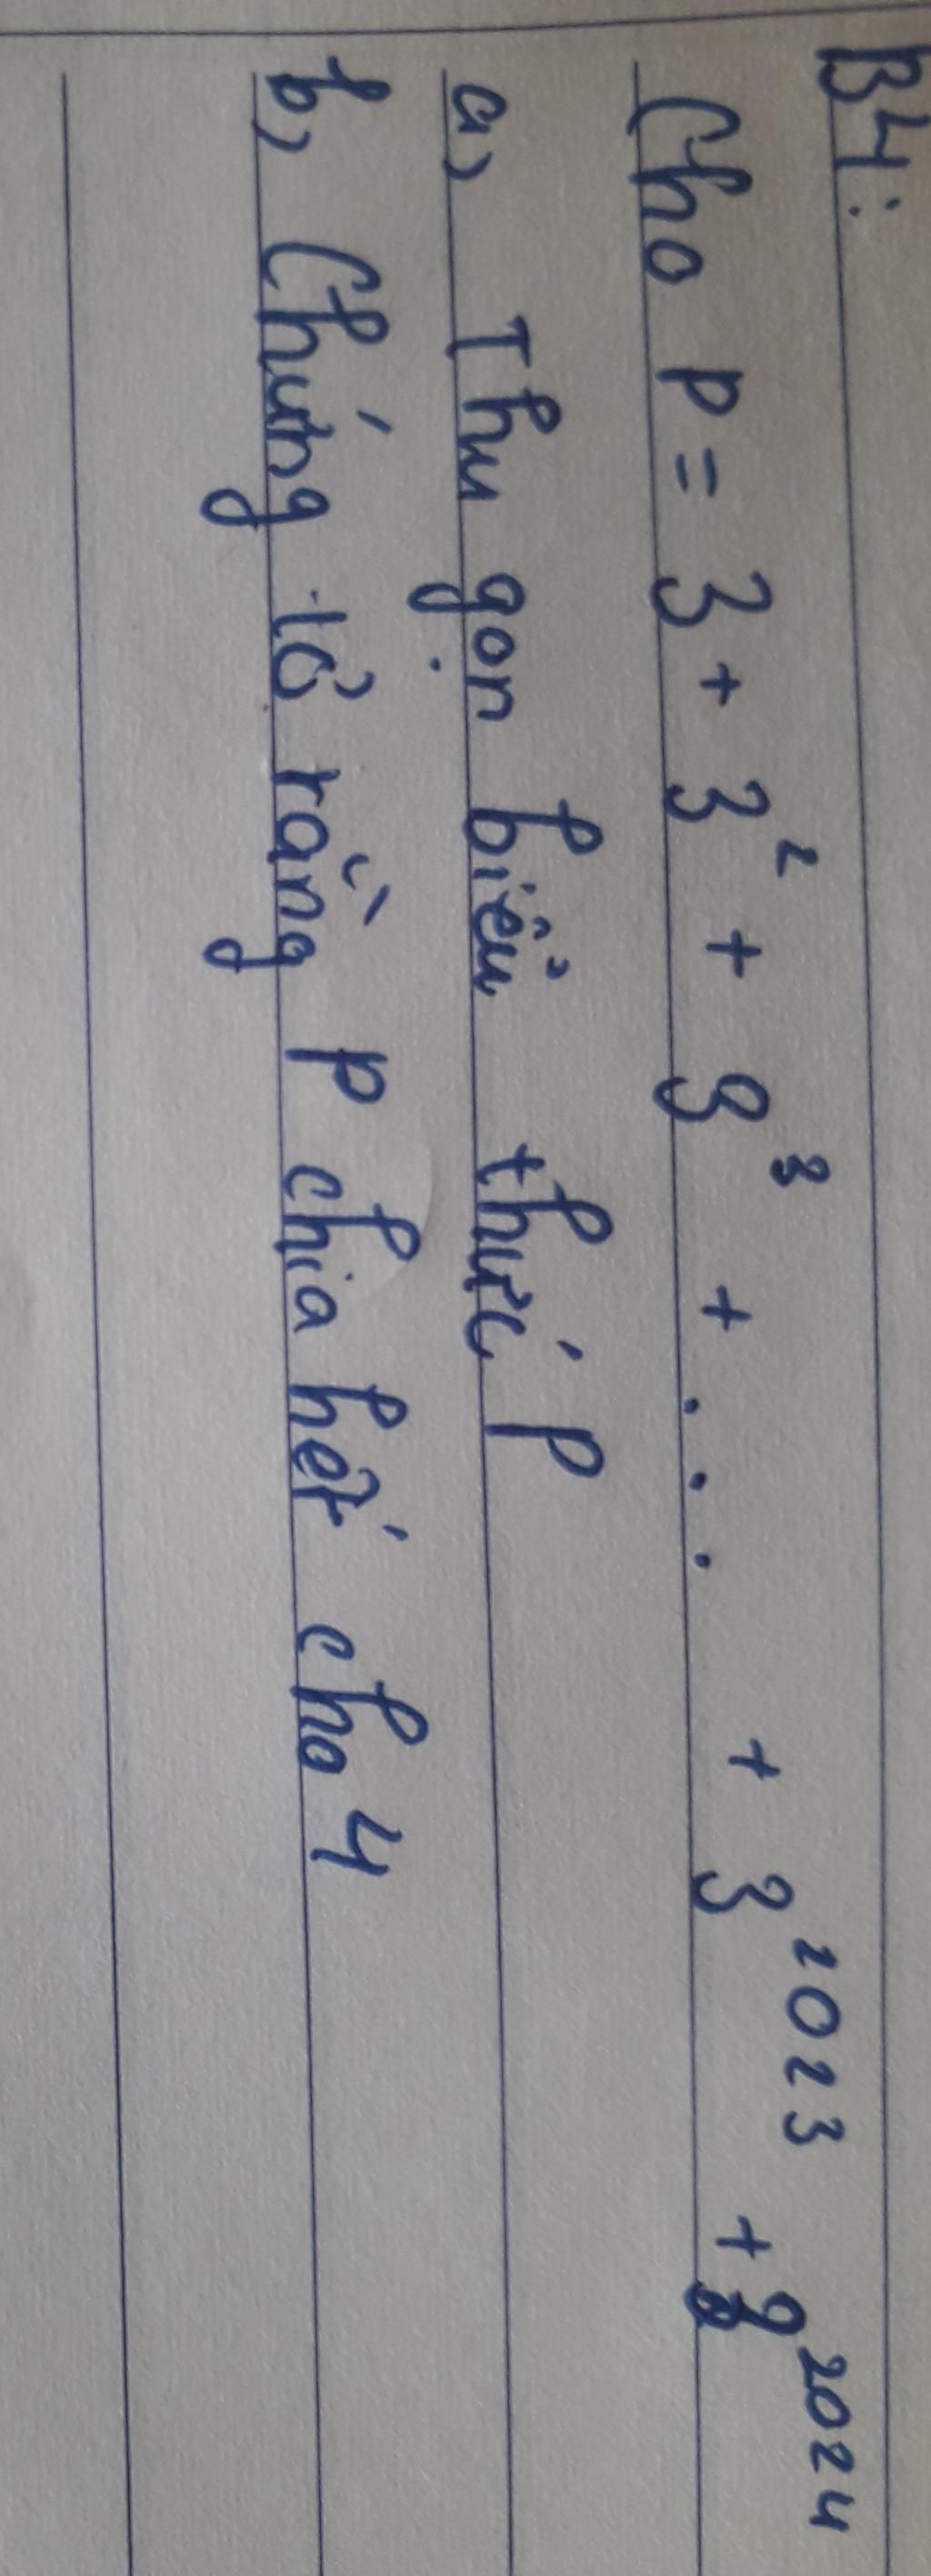 B4:
Cho P = 3 + 3² + 3³ + ... + 3²⁰²³ + 3²⁰²⁴
a, Thu gọn biểu thức P
b, Chứng tỏ rằng P chia hết cho 4